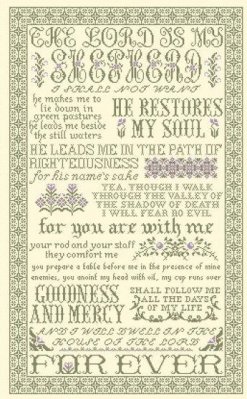 THE LORD IS MY
SHEPHERD
I SHALL NOT WANT
he makes me to
lie down in
green pastures
he leads me beside
the still waters
HE RESTORES
MY SOUL
HE LEADS ME IN THE PATH OF
RIGHTEOUSNESS
for his name's sake
YEA, THOUGH I WALK
THROUGH THE VALLEY OF
THE SHADOW OF DEATH
I WILL FEAR NO EVIL
for you are with me
your rod and your staff
they comfort me
you prepare a table before me in the presence of mine
enemies, you anoint my head with oil, my cup runs over
GOODNESS
AND MERCY
SHALL FOLLOW ME
ALL THE DAYS
OF MY LIFE
AND I WILL DWELL IN THE
HOUSE OF THE LORD
FOREVER